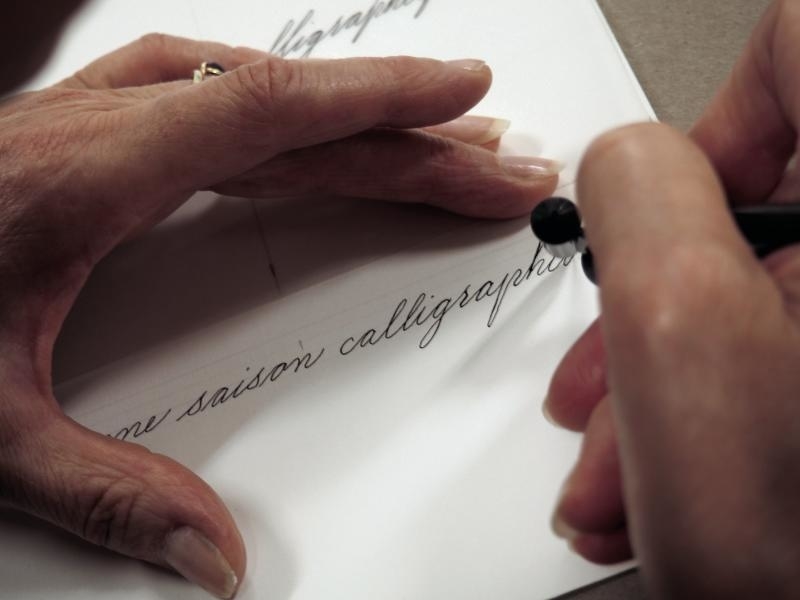 calligraphi
saison calligraphi